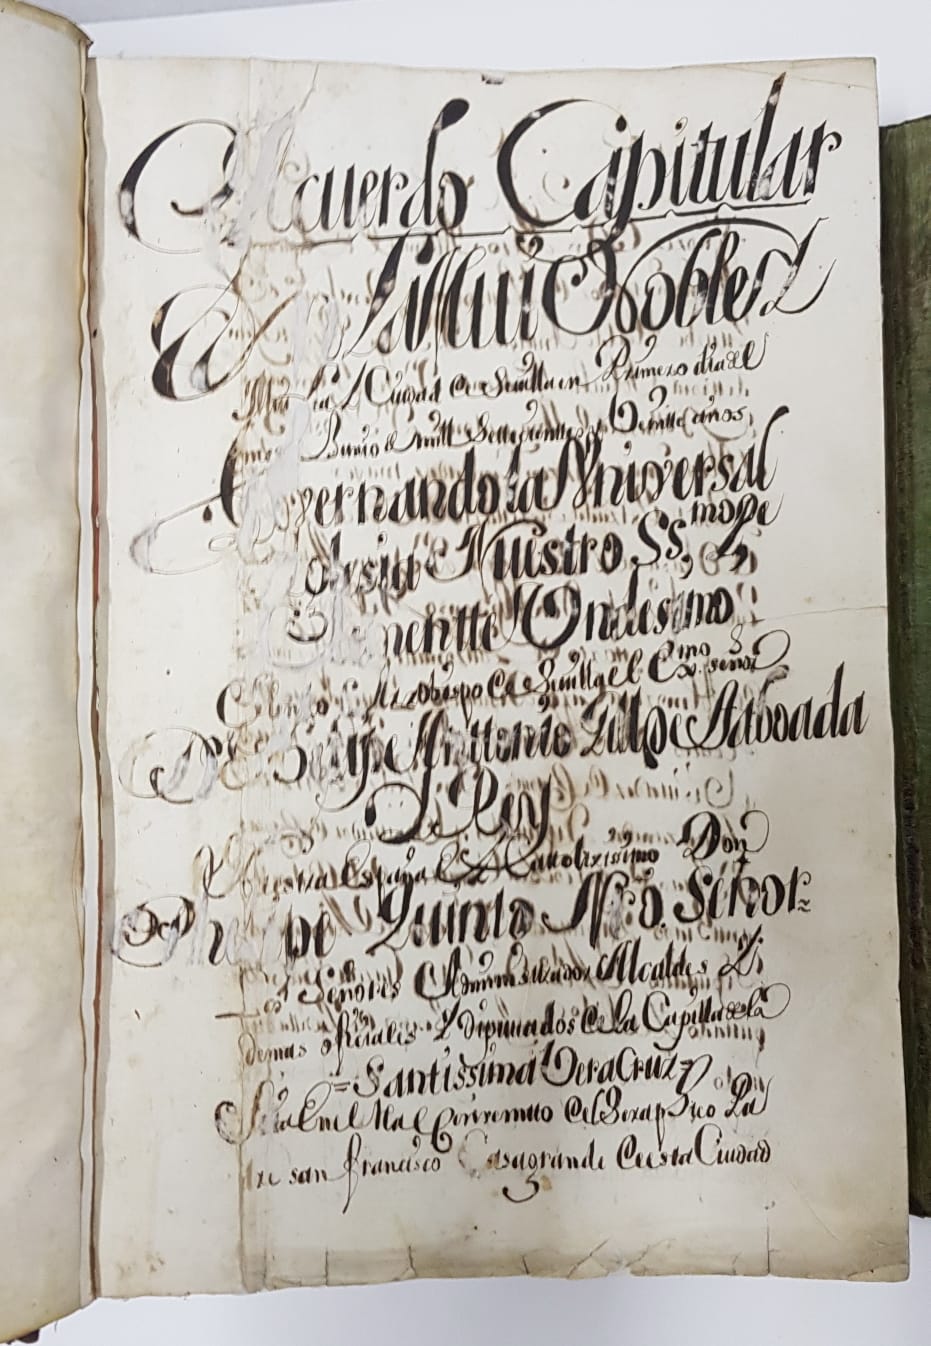 Acuerdo Capitular
En La Mui Noble Y
Mui Leal Ciudad de Sevilla en Primero dia del
mes Junio de mill Settecientos y Veintte años,
Governando la Vniversal
Yglesia Nuestro SS.mo Pe
Clementte Ondesimo
Siendo Arzobispo de Sevilla el Ex.mo Señor
Dn Antonio Taboada
Y Rey
Nuestra España el Cattolixisimo Don
Phelipe Quinto Nro. Señor
Los Señores Administrador Alcaldes Y
demas ofiziales Y diputados de La Capilla de la
=Santissima Vera Cruz
Sita en el Real Convento del Seraphico Pa
dre san francisco Casagrande de esta Ciudad